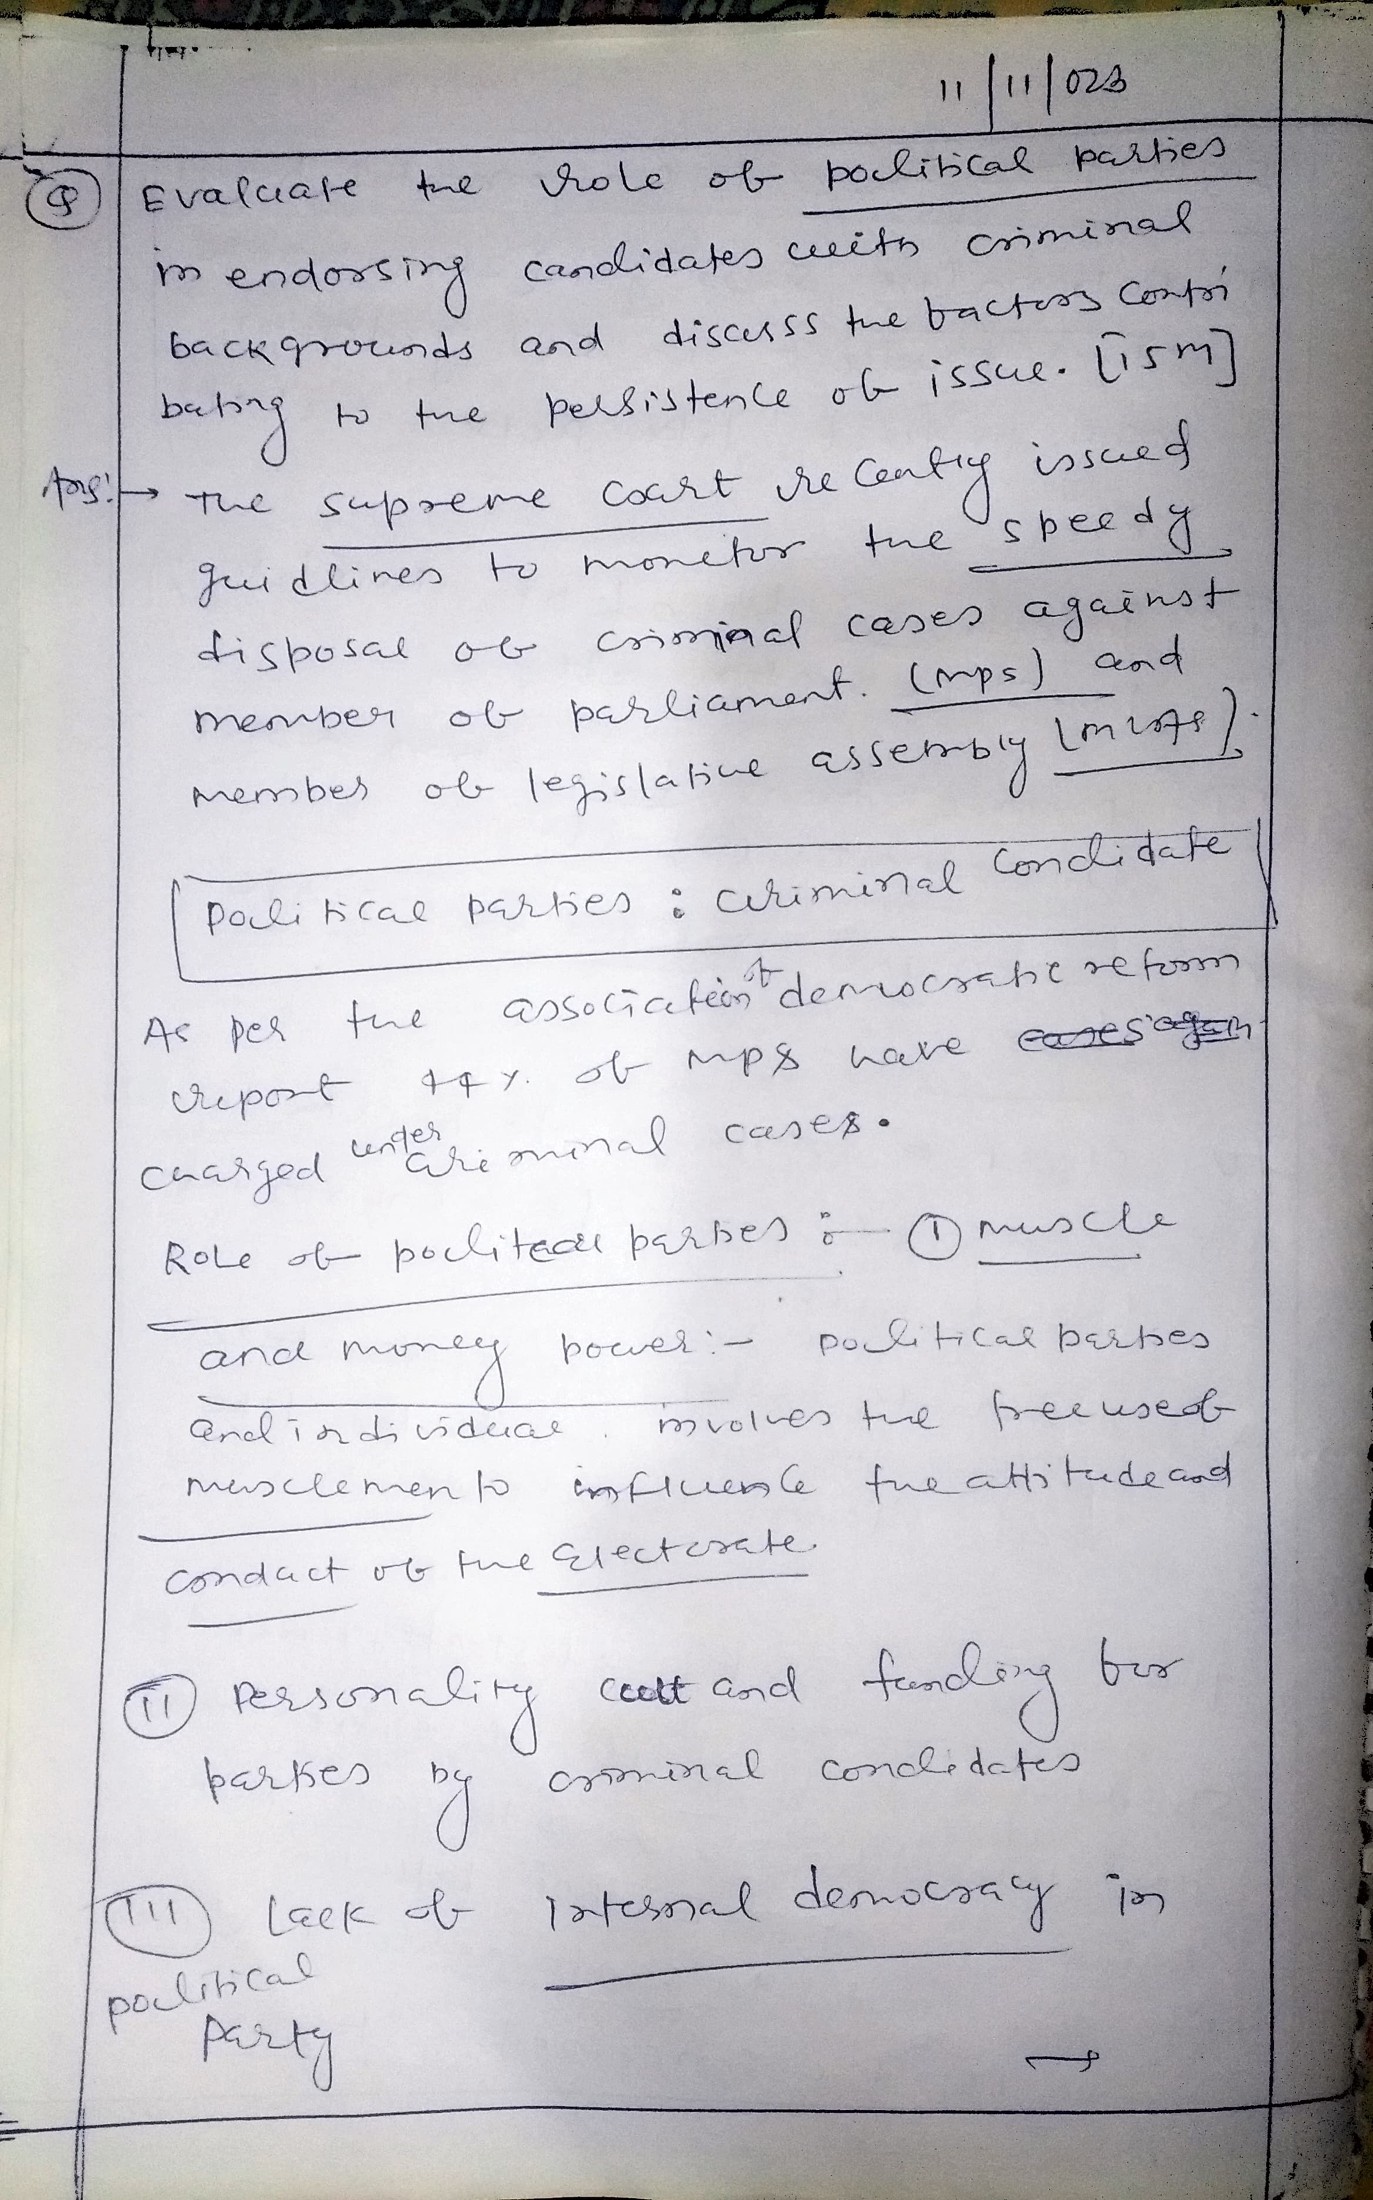 11/11/023
Q Evaluate the role of political parties
in endorsing candidates with criminal
backgrounds and discuss the factors contri
buting to the persistence of issue. [15m]
Ans:→ The supreme court recently issued
guidlines to monitor the speedy
disposal of criminal cases against
member of parliament. (MPs) and
member of legislative assembly (MLAs).
Political parties : criminal Condidate
As per the association of democratic reform
report 44%. of MPs have
charged under criminal cases.
Role of political parties :- (I) muscle
and money power:- political parties
and individual involves the free use of
musclemen to influence the attitude and
conduct of the Electorate.
(II) Personality cult and funding for
parties by criminal condidates
(III) Lack of Internal democracy in
political
Party
→